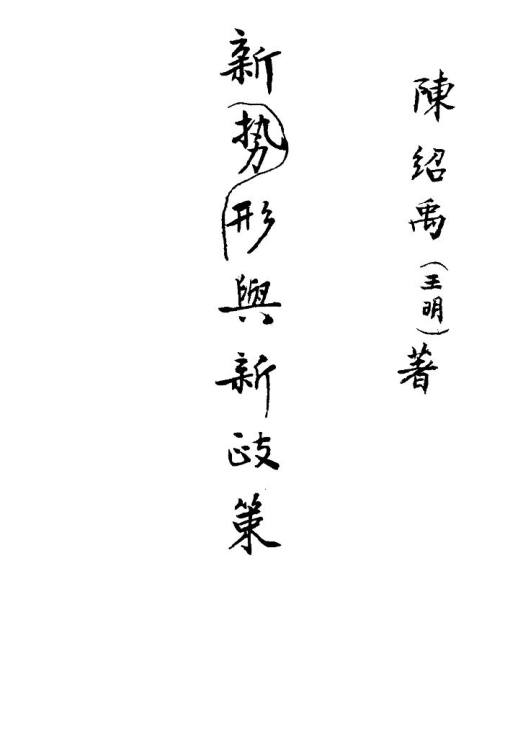 陳紹禹(王明)著
新勢形與新政策